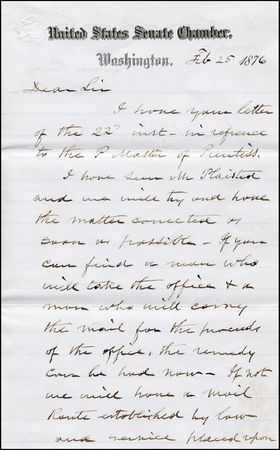 United States Senate Chamber,
Washington, Feb 25 1876
Dear Sir
I have your letter
of the 22d inst - in refrence
to the P Master of Prentiss.
I have seen Mr Plaisted
and we will try and have
the matter corrected as
soon as possible - If you
can find a man who
will take the office & a
man who will carry
the mail for the proceeds
of the office, the remedy
can be had now - If not
we will have a mail
Route established by law
and service placed upon